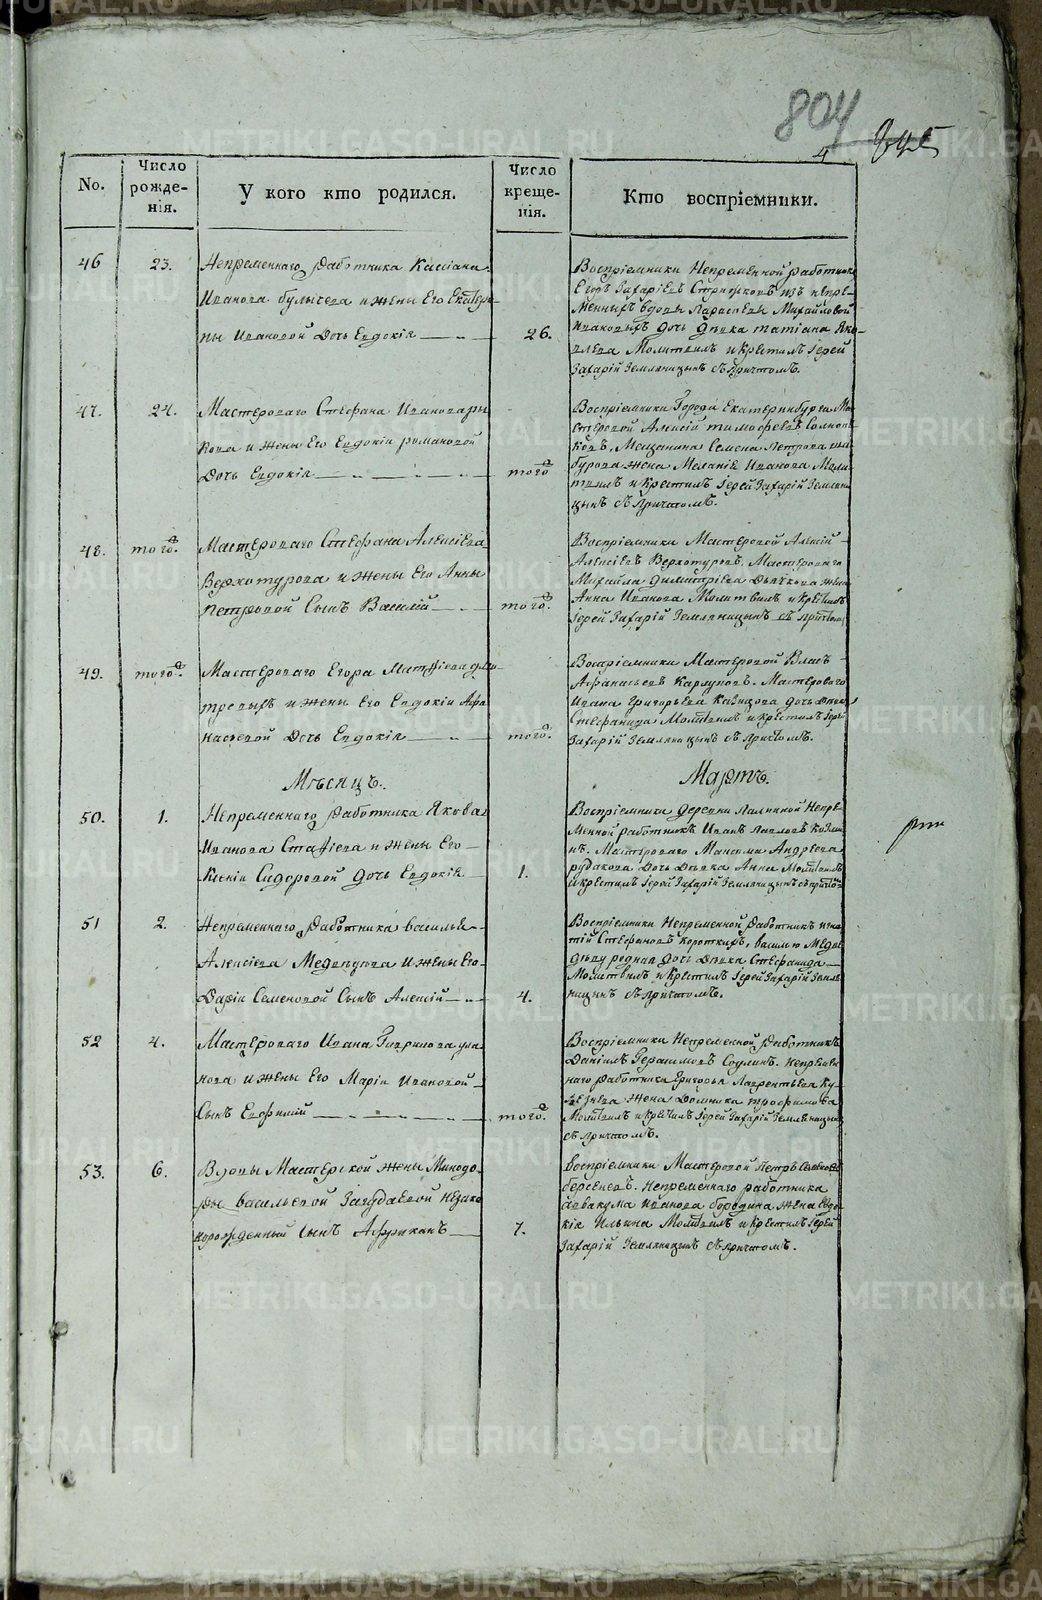 804
4
No.
Число рожде-нія.
У кого кто родился.
Число креще-нія.
Кто воспріемники.
46
23.
Непременнаго работника Кассіана
Иванова булычева и жены Его Екатери-
ны Ивановой Дочь Евдокія
26.
Воспріемники Непременной работник
Егоръ Захаріевъ Стрижковъ изъ непре-
менныхъ вдовы Параскевы Михайловой
Дочь Девка татіана Яко-
влева Молитвилъ и Крестилъ Іерей
Захарій Земляницынъ съ Причтомъ.
47.
24.
Мастероваго Стефана Ивановары
кова и жены Его Евдокіи романовой
Дочь Евдокія
того
Воспріемники Города Екатеринбурга Ма-
стеровой Алексій тимофеевъ
Мещанина Семена Петрова
бурова жена Меланія Иванова Моли-
твилъ и Крестилъ Іерей Захарій Земляни
цынъ съ Причтомъ.
48.
того.
Мастероваго Стефана Алексіева
Верхотурова и жены Его Анны
Петровой Сынъ Василій
того.
Воспріемники Мастеровой Алексій
Алексіевъ Верхотуровъ, Мастероваго
Михайла Димитріева жена
Анна Иванова Молитвилъ и Крестилъ
Іерей Захарій Земляницынъ съ причтомъ
49.
того.
Мастероваго Егора Матфіева дми
тревыхъ и жены Его Евдокіи Афа
насьевой Дочь Евдокія
того.
Воспріемники Мастеровой Власъ
Афанасьевъ Карпуновъ. Мастероваго
Ивана Григорьева Казнцова дочь девка
Стефанида Молитвилъ и крестилъ Іерей
Захарій Земляницынъ съ причтомъ.
Мѣсяцъ.
Мартъ.
50.
1.
Непременнаго работника Якова
Иванова Стафіева и жены Его
Ксеніи Сидоровой дочь Евдокія
1.
Воспріемники деревни Палкиной Непре-
менной работникъ Иванъ Павловъ Козми
нъ. Мастероваго Максима Андреева
рудакова Дочь Девка Анна Молитвилъ
и крестилъ Іерей Захарій Земляницынъ съ причто
51
2.
Непременнаго работника василья
Алексіева Медведчова и жены Его
Даріи Семеновой Сынъ Алексій
4.
Воспріемники Непременной работникъ игна
тій Стефановъ Короткихъ, василью Медве
родная дочь девка Стефанида
Молитвилъ и Крестилъ Іерей Захарій Земля
ницынъ съ Причтомъ.
52
4.
Мастероваго Ивана Гаврилова ула-
нова и жены Его Маріи Ивановой
Сынъ Ефимій
того.
Воспріемники Непременной работникъ
Даніилъ Герасимовъ Содлинъ. непремен-
наго работника Григорья Лаврентьева Ку-
знеца жена Домника трофимова
Молитвилъ и крестилъ Іерей Захарій Земляницынъ
съ причтомъ.
53.
6.
Вдовы Мастерской жены Минодо-
ры васильевой Загудаевой незако
норожденный сынъ Африканъ
7.
воспріемники Мастеровой Петръ
берсеневъ. Непременнаго работника
аввакума Иванова бородина жена Евдо
кія Ильина Молитвилъ и крестилъ Іерей
Захарій Земляницынъ съ причтомъ.
METRIKI.GASO-URAL.RU